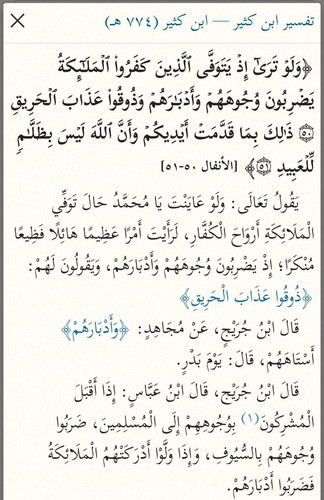 تفسير ابن كثير — ابن كثير (٧٧٤ هـ)
﴿وَلَوْ تَرَىٰٓ إِذْ يَتَوَفَّى ٱلَّذِينَ كَفَرُوا۟ ٱلْمَلَٰٓئِكَةُ
يَضْرِبُونَ وُجُوهَهُمْ وَأَدْبَٰرَهُمْ وَذُوقُوا۟ عَذَابَ ٱلْحَرِيقِ
۝٥٠ ذَٰلِكَ بِمَا قَدَّمَتْ أَيْدِيكُمْ وَأَنَّ ٱللَّهَ لَيْسَ بِظَلَّٰمٍۢ
لِّلْعَبِيدِ ۝٥١﴾ [الأنفال ٥٠-٥١]
يَقُولُ تَعَالَى: وَلَوْ عَايَنْتَ يَا مُحَمَّدُ حَالَ تَوَفِّي
الْمَلَائِكَةِ أَرْوَاحَ الْكُفَّارِ، لَرَأَيْتَ أَمْرًا عَظِيمًا هَائِلًا فَظِيعًا
مُنْكَرًا؛ إِذْ يَضْرِبُونَ وُجُوهَهُمْ وَأَدْبَارَهُمْ، وَيَقُولُونَ لَهُمْ:
﴿ذُوقُوا عَذَابَ الْحَرِيقِ﴾
قَالَ ابْنُ جُرَيْجٍ، عَنْ مُجَاهِدٍ: ﴿وَأَدْبَارَهُمْ﴾
أَسْتَاهَهُمْ، قَالَ: يَوْمَ بَدْرٍ.
قَالَ ابْنُ جُرَيْجٍ، قَالَ ابْنُ عَبَّاسٍ: إِذَا أَقْبَلَ
الْمُشْرِكُونَ(١) بِوُجُوهِهِمْ إِلَى الْمُسْلِمِينَ، ضَرَبُوا
وُجُوهَهُمْ بِالسُّيُوفِ، وَإِذَا وَلَّوْا أَدْرَكَتْهُمُ الْمَلَائِكَةُ
فَضَرَبُوا أَدْبَارَهُمْ.